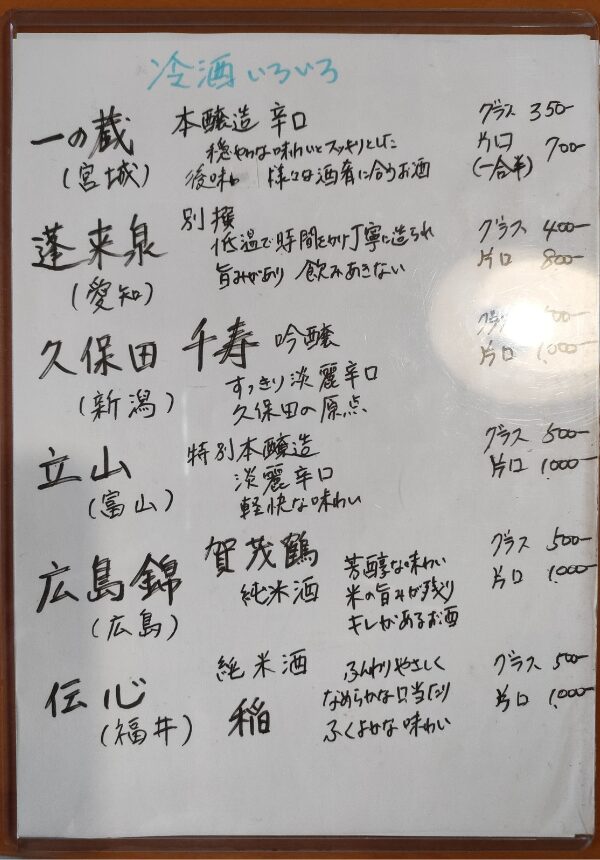 冷酒いろいろ
一の蔵 本醸造 辛口 グラス 350-
(宮城) 穏やかな味わいとスッキリとした 片口 700-
後味 様々な酒肴に合うお酒 (一合半)
蓬来泉 別撰 グラス 400-
(愛知) 低温で時間をかけ丁寧に造られ 片口 800-
旨みがあり 飲みあきない
久保田 千寿 吟醸 グラス 00-
(新潟) すっきり淡麗辛口 片口 1,000-
久保田の原点
立山 特別本醸造 グラス 500-
(富山) 淡麗辛口 片口 1,000-
軽快な味わい
広島錦 賀茂鶴 芳醇な味わい グラス 500-
(広島) 純米酒 米の旨みが残り 片口 1,000-
キレがあるお酒
伝心 純米酒 ふんわりやさしく グラス 500-
(福井) 稲 なめらかな口当たり 片口 1,000-
ふくよかな味わい